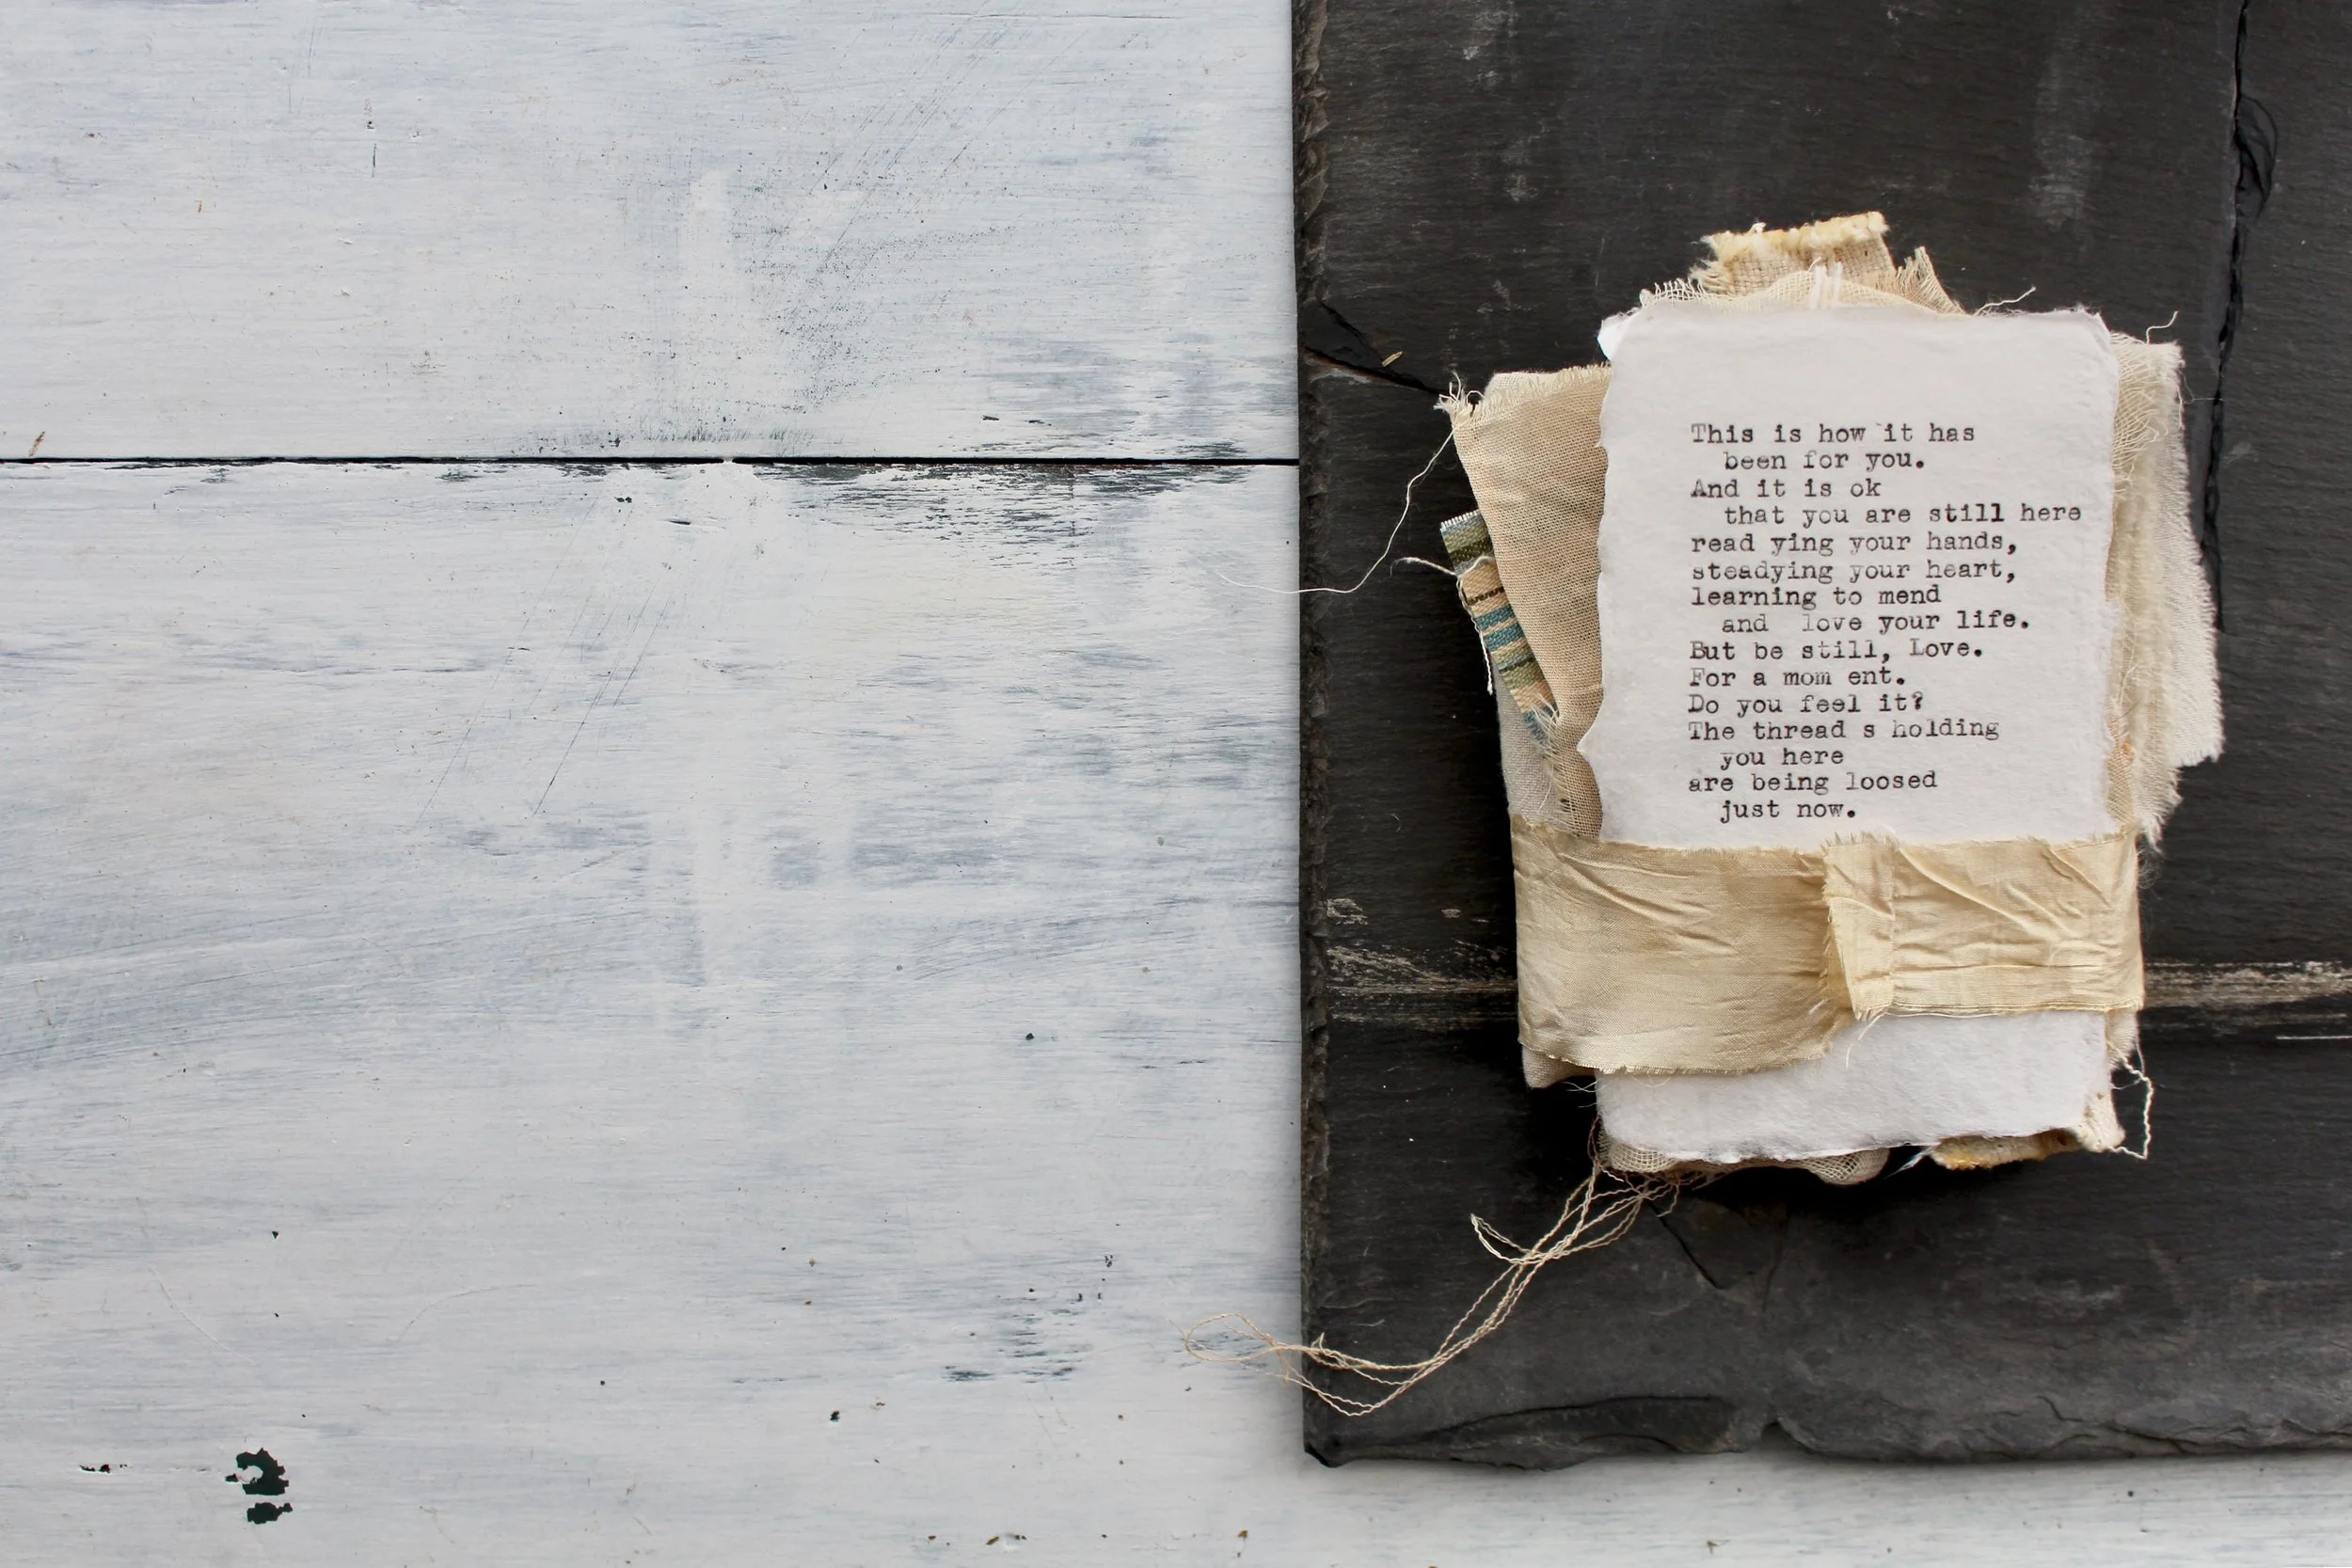 This is how it has
been for you.
And it is ok
that you are still here
read ying your hands,
steadying your heart,
learning to mend
and  love your life.
But be still, Love.
For a mom ent.
Do you feel it?
The thread s holding
you here
are being loosed
just now.